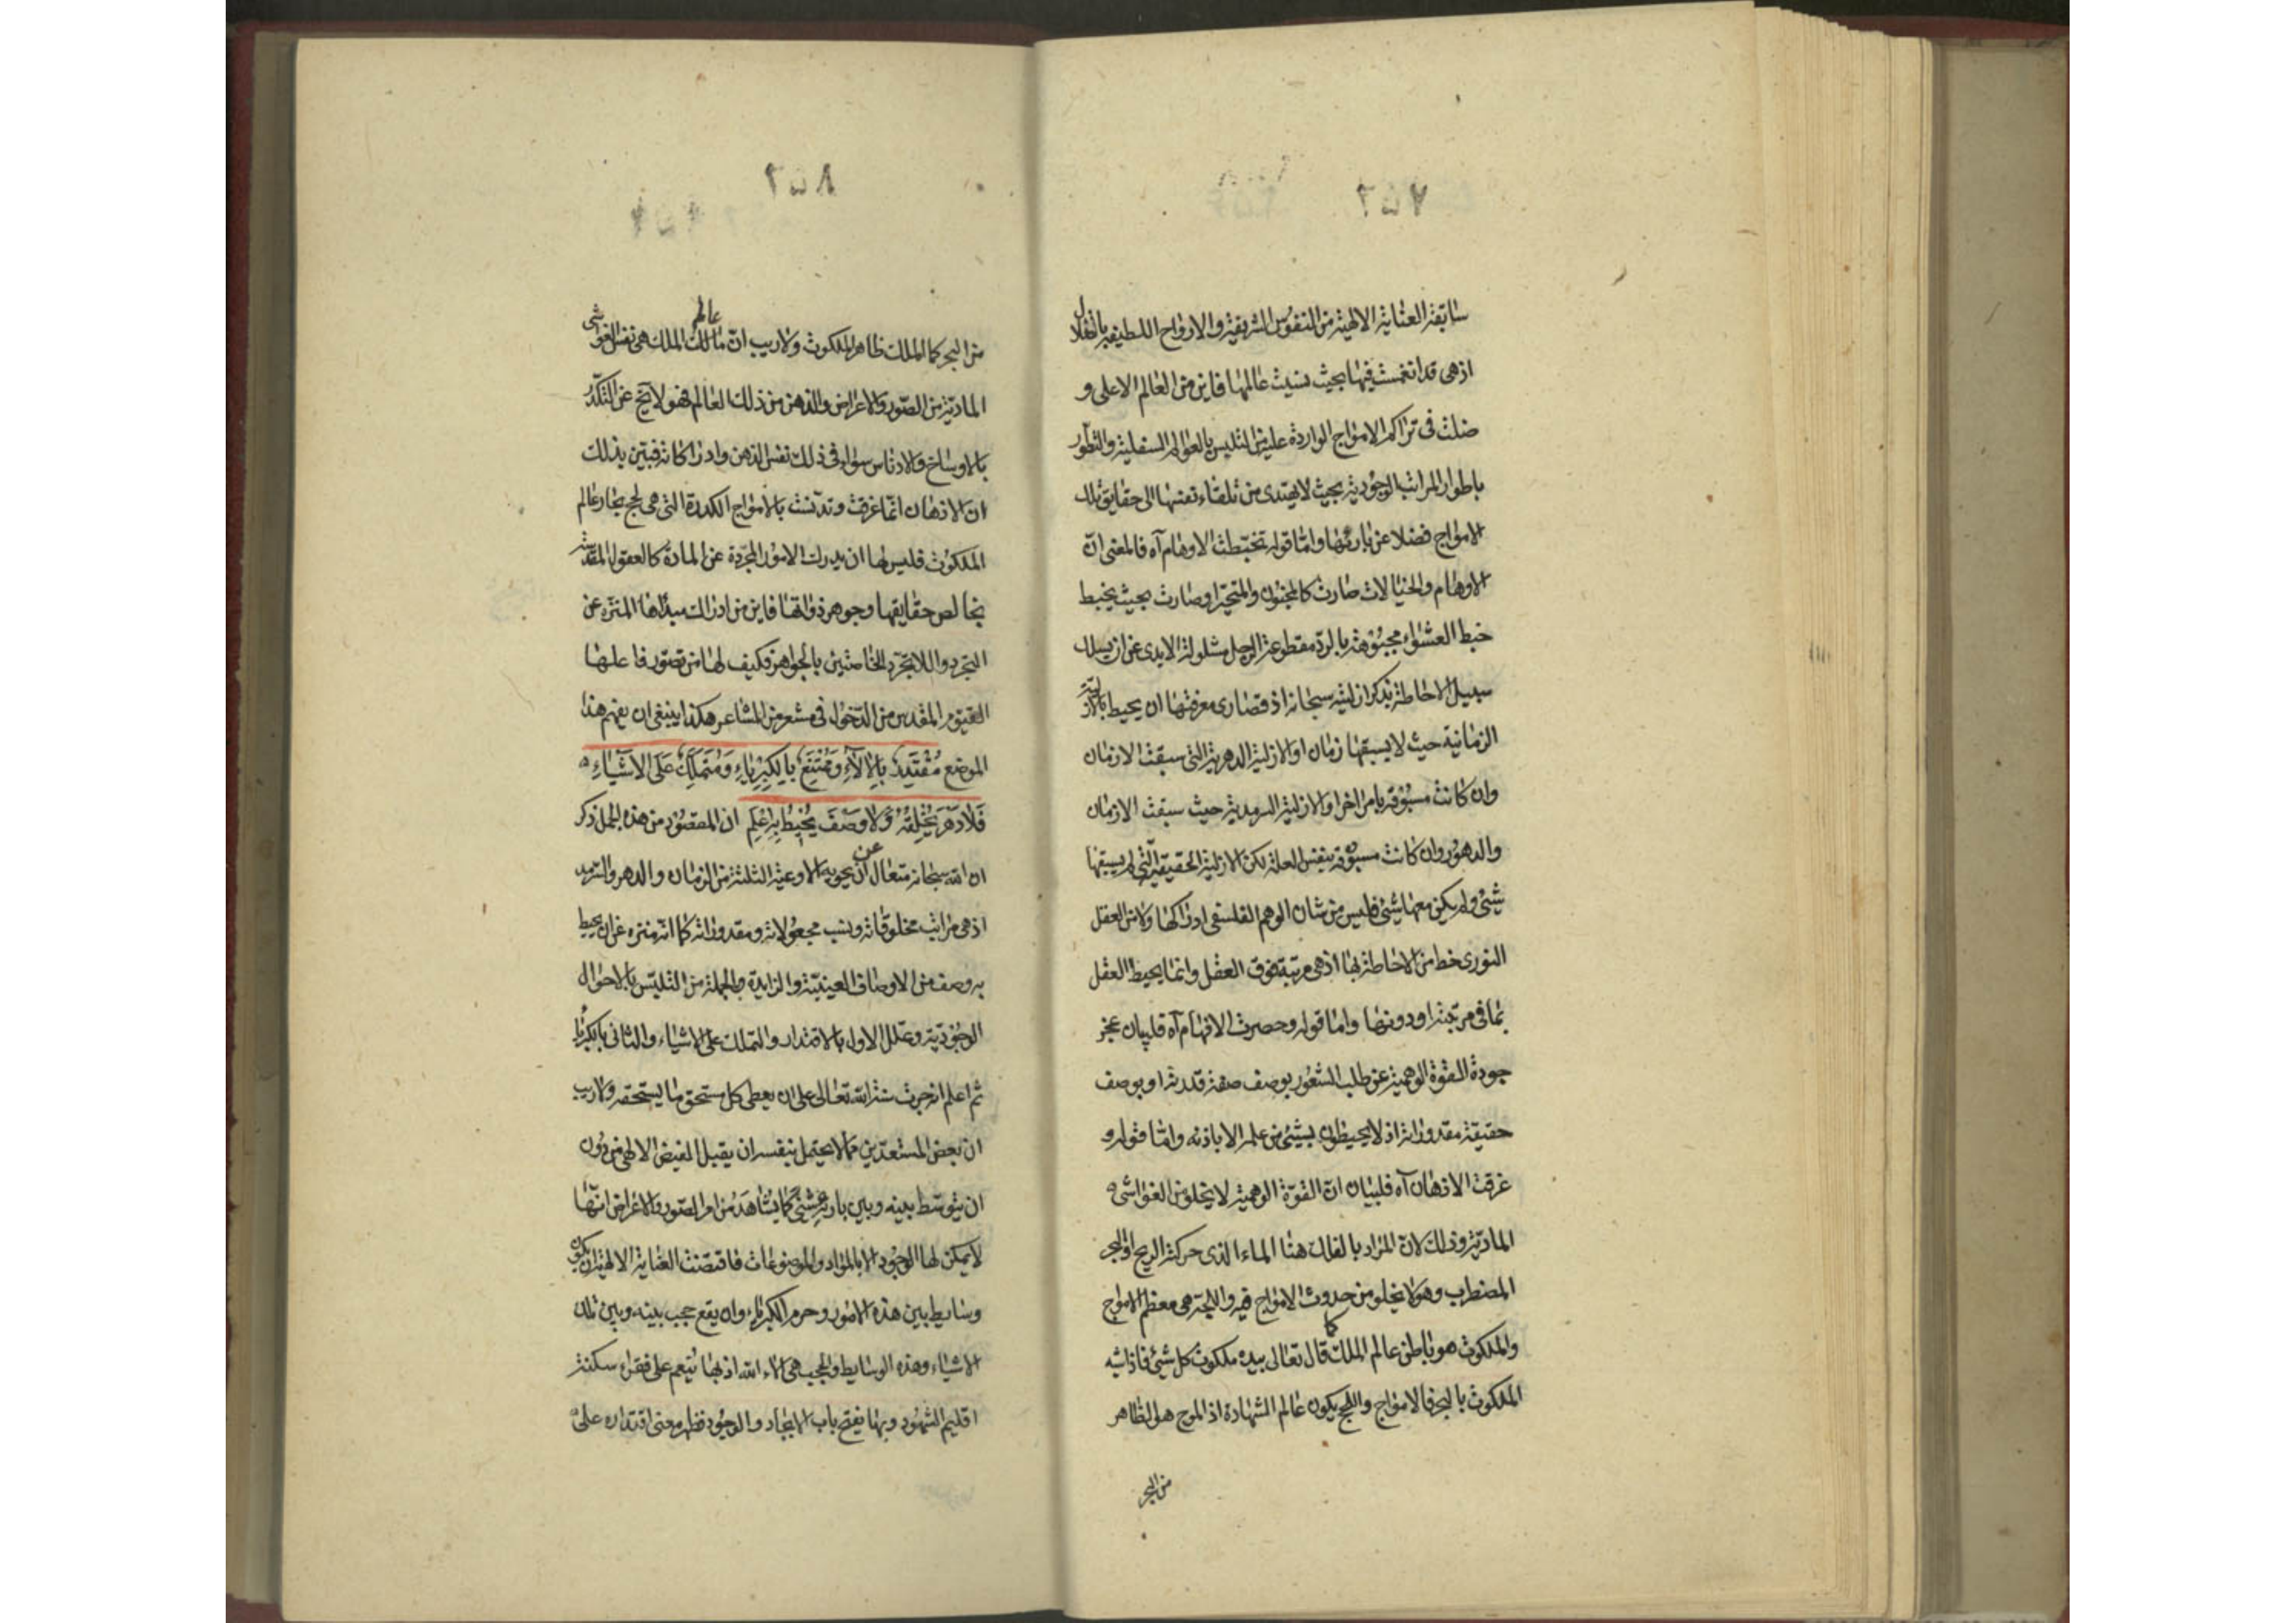 ٢٥٧
سابقة العناية الالهية من النفوس الشريفة والارواح اللطيفة بانفعال
اذ هى قد انغمست فيها بحيث نسيت عالمها فاين من العالم الاعلى و
ضلت فى تراكم الامواج الواردة عليها من التلبس بالعوالم السفلية والتطور
باطوار المراتب الوجودية بحيث لا يهتدى من تلقاء نفسها الى حقايق تلك
الامواج فضلا عن بارئها واما قوله تخبطت الاوهام آه فالمعنى ان
الاوهام والخيالات صارت كالمجنون والمتحير او صارت بحيث يخبط
خبط العشواء مجبوهة بالرد مقطوعة الرجل مشلولة الايدى عن ان يسلك
سبيل الاحاطة بذكر ازليته سبحانه اذ قصارى معرفتها ان يحيط بالازلية
الزمانية حيث لا يسبقها زمان او الازلية الدهرية التى سبقت الازمان
وان كانت مسبوقة بامر اخر او الازلية السرمدية حيث سبقت الازمان
والدهور وان كانت مسبوقة بنفس العلة لكن الازلية الحقيقية التى لم يسبقها
شئ ولم يكن معها شئ فليس من شان الوهم الفلسفى ادراكها ولا من العقل
النورى خط من الاحاطة بها اذ هى مرتبة فوق العقل وانما يحيط العقل
بما فى مرتبته او دونها واما قوله وحصرت الافهام آه فلبيان عجز
جودة القوة الوهمية عن طلب الشعور بوصف صفة قدرته او بوصف
حقيقة مقدوراته اذ لا يحيطون بشئ من علمه الا باذنه واما قوله و
غرقت الاذهان آه فلبيان ان القوة الوهمية لا يخلو من الغواشى
المادية وذلك لان المراد بالفلك هنا الماء الذى حركته الريح او البحر
المضطرب وهو لا يخلو من حدوث الامواج فيه واللجة هى معظم الامواج
والملكوت هو باطن عالم الملك كما قال تعالى بيده ملكوت كل شئ فاذا شبه
الملكوت بالبحر فالامواج واللجج يكون عالم الشهادة اذ الموج هو الظاهر
من البحر
٢٥٨
من البحر كما الملك ظاهر الملكوت ولا ريب ان عالم الملك هى نفس الغواشى
المادية من الصور والاعراض والذهن من ذلك العالم فهو لا يخ عن التكدر
بالاوساخ والادناس سواء فى ذلك نفس الذهن وادراكاته فبين بذلك
ان الاذهان انما غرقت وتدنست بالامواج الكدرة التى هى لجج بحار عالم
الملكوت فليس لها ان يدرك الامور المجردة عن المادة كالعقول المقدسة
بخالص حقايقها وجوهر ذواتها فاين من ادراك مبدأها المنزه عن
التجرد واللاتجرد الخاصتين بالجواهر فكيف لها من تصور فاعلها
القيوم المقدس من الدخول فى مشعر من المشاعر هكذا ينبغى ان يفهم هذا
الموضع مُقْتَدِرٌ بِالآلاءِ وَمُمْتَنِعٌ بِالكِبْرِيَاءِ وَمُتَمَلِّكٌ عَلَى الاَشْيَاءِ
فَلاَ دَهْرَ يُخْلِقُهُ وَلاَ وَصْفَ يُحِيطُ بِهِ اعلم ان المقصود من هذه الجمل ذكر
ان الله سبحانه متعال عن ان يحويه الاوعية الثلثة من الزمان والدهر والسرمد
اذ هى مراتب مخلوقاته ونسب مجعولاته ومقدوراته كما انه منزه عن ان يحيط
به وصف من الاوصاف العينية والزايدة وبالجملة من التلبس بالاحوال
الوجودية وعلل الاول بالاقتدار والتملك على الاشياء والثانى بالكبرياء
ثم اعلم انه جرت سنة الله تعالى على ان يعطى كل مستحق ما يستحقه ولا ريب
ان بعض المستعدين مما لا يحتمل بنفسه ان يقبل الفيض الالهى من دون
ان يتوسط بينه وبين بارئه شئ كما يشاهد من امر الصور والاعراض انها
لا يمكن لها الوجود الا بالمواد والموضوعات فاقتضت العناية الالهية ان يكون
وسايط بين هذه الامور وحرم الكبرياء وان يقع حجب بينه وبين تلك
الاشياء وهذه الوسايط والحجب هى آلاء الله اذ بها ينعم على فقراء سكنة
اقليم الشهود وبها يفتح باب الايجاد والوجود فظهر معنى اقتداره على